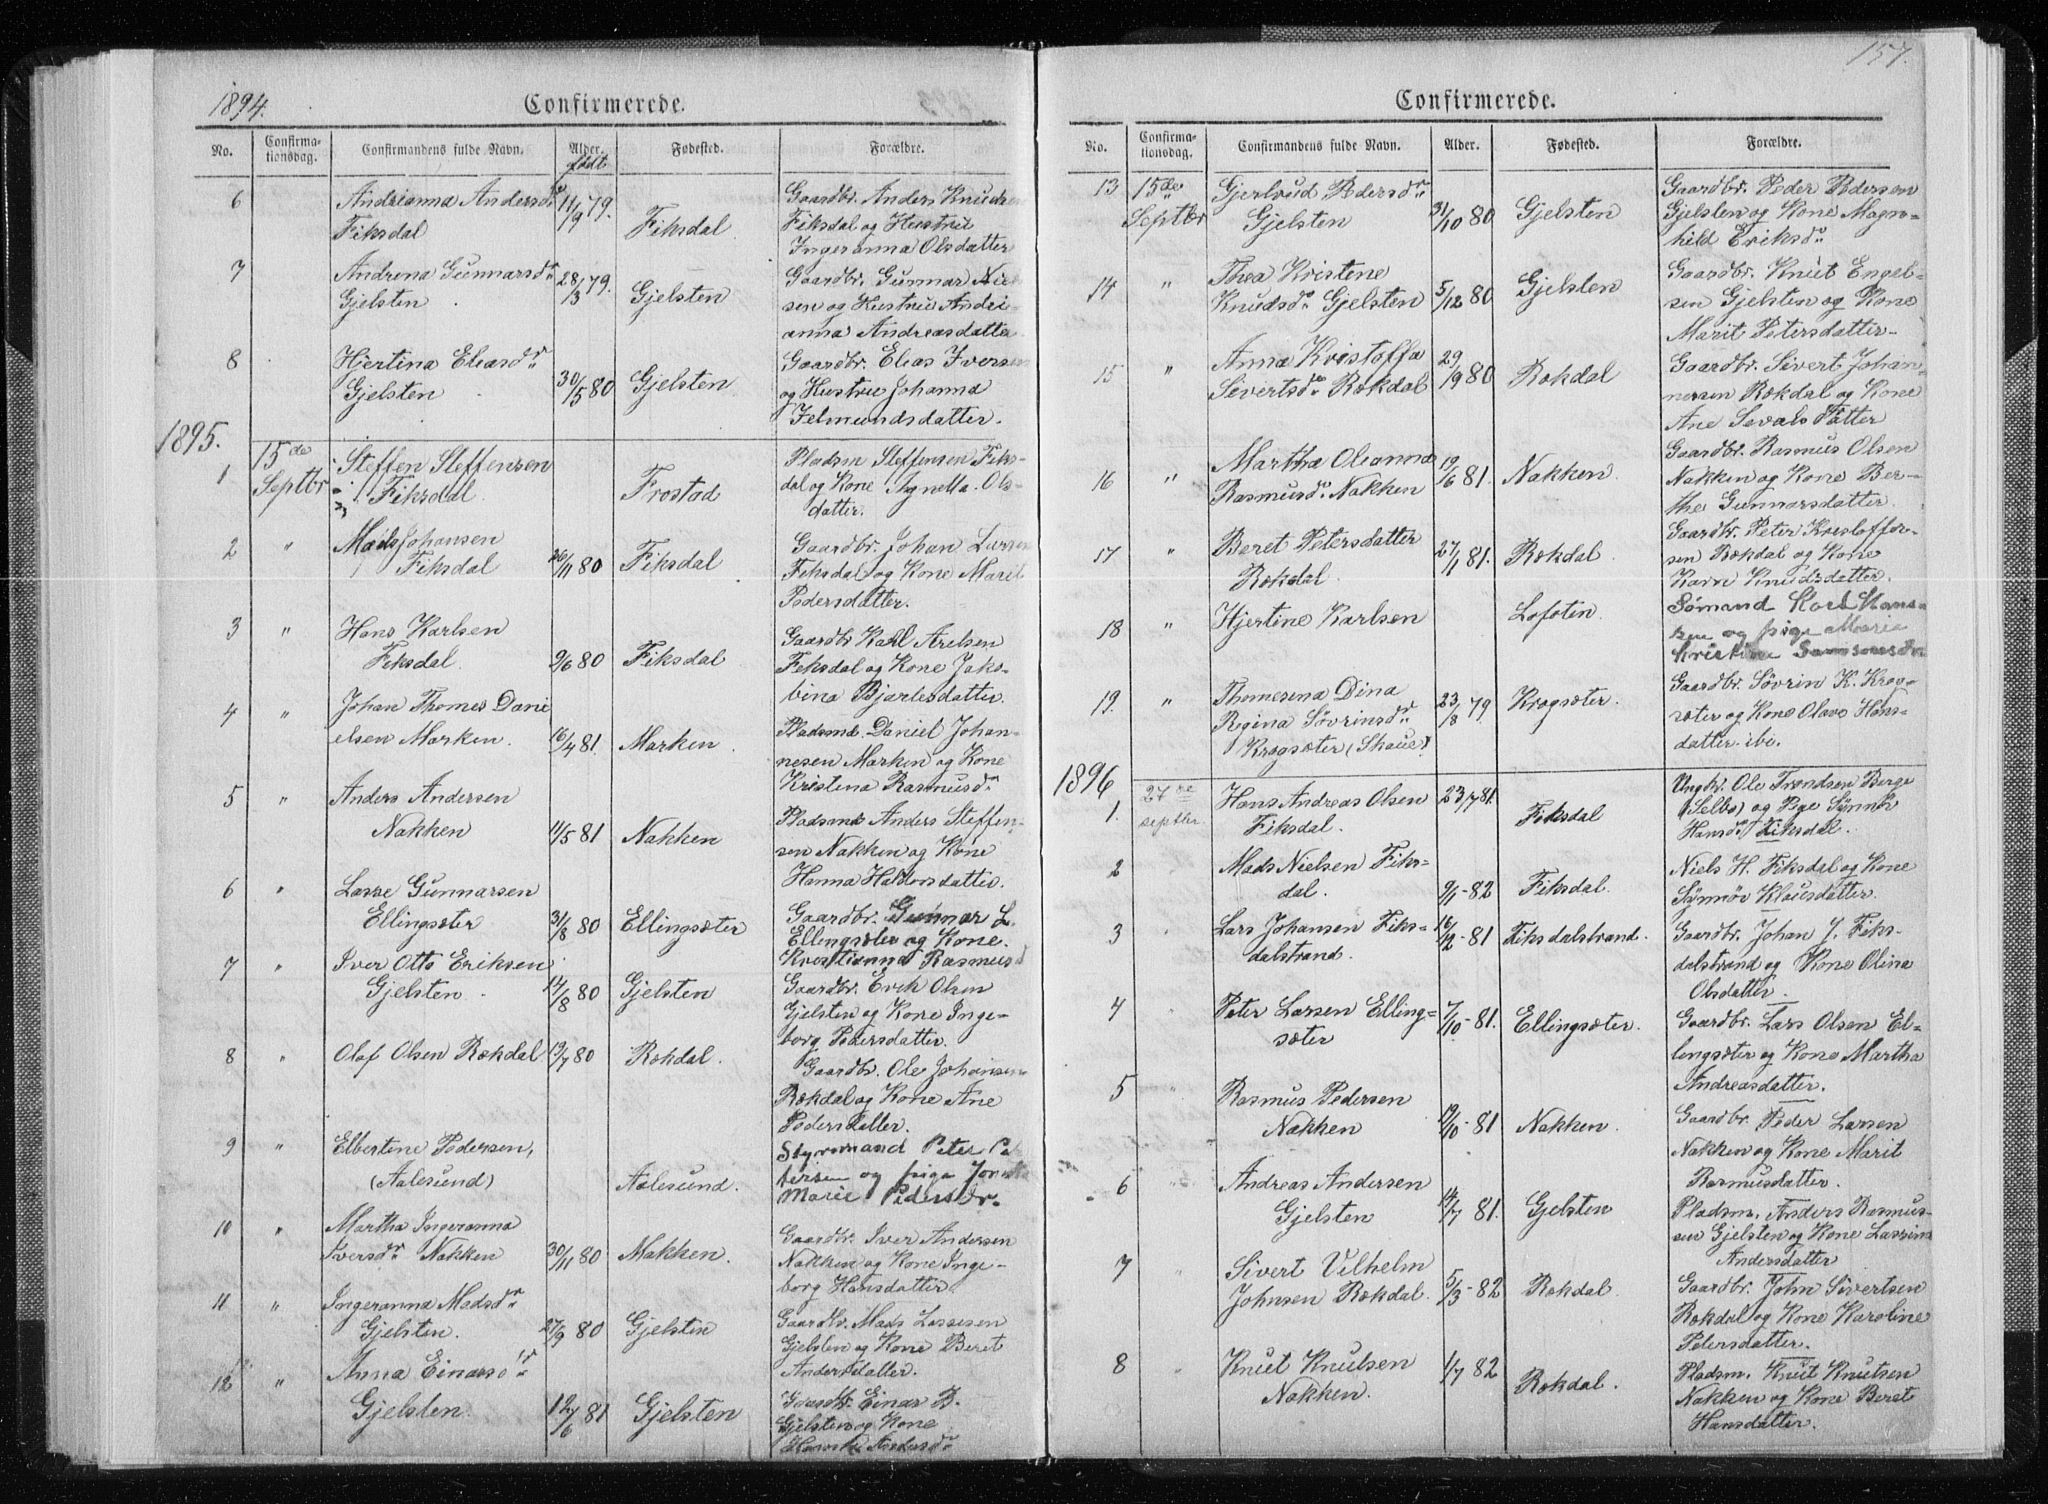 1894.
Confirmerede.
No.
Confirma-
tionsdag.
Confirmandens fulde Navn.
Alder.
født
Fødested.
Forældre.
6
Andrianna Andersdr
Fiksdal
11/9 79.
Fiksdal
Gaardbr. Anders Knudsen
Fiksdal og Hustru
Ingeranna Olsdatter
7
Andrena Gunnarsdr
Gjelsten
28/3 79.
Gjelsten
Gaardbr. Gunnar
sen og Hustru Andri-
anna Andreasdatter
8
Hjertina Eliasdr
Gjelsten
30/5 80
Gjelsten
Gaardbr. Elias Iversen
og Hustru Johanna
Jelmundsdatter.
1895.
1
15de
Septbr
Steffen Steffensen
Fiksdal.
Frostad
Pladsm Steffensen Fiks-
dal og Kone Agnella Ols-
datter.
2
"
Mads Johansen
Fiksdal
26/11 80
Fiksdal
Gaardbr. Johan Larsen
Fiksdal og Kone Marit
Pedersdatter.
3
"
Hans Karlsen
Fiksdal.
9/6 80
Fiksdal
Gaardbr Karl Arelsen
Fiksdal og Kone Jako-
bina Bjarlesdatter.
4
"
Johan Thomas Dani
elsen Marken.
16/4 81.
Marken
Pladsmd. Daniel Johan-
nesen Marken og Kone
Kristena Rasmusdr
5
"
Anders Andersen
Nakken
11/5 81
Nakken
Pladsmd Anders Steffen-
sen Nakken og Kone
Hanna Haldorsdatter.
6
"
Lasse Gunnarsen
Ellingsæter
31/8 80
Ellingsæter
Gaardbr. Gunnar L.
Ellingsæter og Kone.
Kristianna Rasmusd
7
"
Iver Otto Eriksen
Gjelsten
14/8 80
Gjelsten
Gaardbr. Erik Olsen
Gjelsten og Kone Inge-
borg Pedersdatter.
8
"
Olaf Olsen Rekdal
13/7 80
Rekdal.
Gaardbr. Ole Johansen
Rekdal og Kone Ane
Pedersdatter.
9
"
Elbertine Pedersen,
(Aalesund)
Aalesund.
Styrmand Peter Pe
tersen og pige
Marie Pedersdr.
10
"
Martha Ingeranna
Iversdr Nakken
30/11 80
Nakken.
Gaardbr. Iver Andersen
Nakken og Kone Inge-
borg Hansdatter
11
"
Ingeranna Madsdr
Gjelsten.
27/9 80
Gjelsten
Gaardbr. Mads Lassesen
Gjelsten og Kone Beret
Andersdatter.
12
"
Anna Einarsdr
Gjelsten.
12/6 81
Gjelsten
Gaardbr. Einar B.
Gjelsten og Kone
Andersdr
157.
Confirmerede.
No.
Confirma-
tionsdag.
Confirmandens fulde Navn.
Alder.
Fødested.
Forældre.
13
15de
Septbr
Gjertrud Pedersdr
Gjelsten
31/10 80
Gjelsten
Gaardbr. Peder Pedersen
Gjelsten og Kone Magn-
hild Eriksdr
14
"
Thea Kristene
Knudsdr Gjelsten
5/12 80
Gjelsten
Gaardbr. Knut Engel-
sen Gjelsten og Kone
Marit Petersdatter
15
"
Anna Kristoffa
Sivertsdr Rekdal
29/9 80
Rekdal
Gaardbr. Sivert Johan-
nessen Rekdal og Kone
Ane Sevalsdatter
16
"
Martha Oleanna
Rasmusdr Nakken
19/6 81.
Nakken.
Gaardbr. Rasmus Olsen
Nakken og Kone Ber-
the Gunnarsdatter.
17
"
Beret Petersdatter
Rekdal.
27/1 81.
Rekdal.
Gaardbr. Peter Kristoffer-
sen Rekdal og Kone
Karn Knudsdatter.
18
"
Hjertine Karlsen
Lofoten
Sømand Karl Hans-
sen og pige Marie
Kristine Samsonsdr
19.
"
Thomesena Dina
Regina Sövrinsdr
Krogsæter (Skaue)
23/8 79
Krogsæter.
Gaardbr. Sövrin K. Krog-
sæter og Kone Olava Hans-
datter ibi.
1896
1.
27de
septbr.
Hans Andreas Olsen
Fiksdal.
23/7 81.
Fiksdal
Ungkr. Ole Trondsen Berge
(Selbo) og Pige Synnøv
Hansdr Fiksdal.
2
Mads Nielsen Fiks-
dal.
9/1-82
Fiksdal.
Niels H. Fiksdal og Kone
Synnøv Klausdatter.
3
Lars Johansen Fiks-
dalstrand.
16/2-81
Fiksdalstrand.
Gaardbr. Johan J. Fiks-
dalstrand og Kone Olina
Olsdatter.
4
Peter Larsen Elling-
sæter
7/10-81.
Ellingsæter.
Gaardbr. Lars Olsen El-
lingsæter og Kone Martha
Andreasdatter.
5
Rasmus Pedersen
Nakken
19/10-81
Nakken.
Gaardbr. Peder Larsen
Nakken og Kone Marit
Rasmusdatter.
6
Andreas Andersen
Gjelsten
14/7 81.
Gjelsten
Pladsm. Anders Rasmus-
sen Gjelsten og Kone Lassina
Andersdatter
7
Sivert Vilhelm
Johnsen Rekdal.
5/3-82
Rekdal.
Gaardbr. John Sivertsen
Rekdal og Kone Karoline
Petersdatter.
8
Knut Knutsen
Nakken.
1/7 82
Rekdal.
Pladsm. Knut Knutsen
Nakken og Kone Beret
Hansdatter.